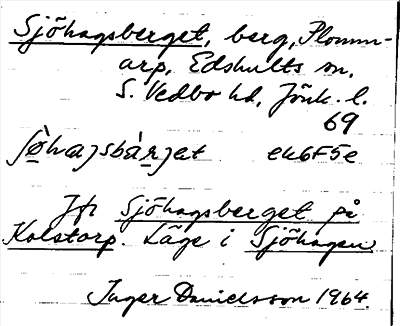 Sjöhagsberget, berg, Plomm-
arp, Edshults sn,
S. Vedbo hd, Jönk. l.
69
ʃø̀haɡsbæ̀rjet ek6F5e
Jfr Sjöhagsberget på
Kolstorp. Läge i Sjöhagen
Inger Danielsson 1964.